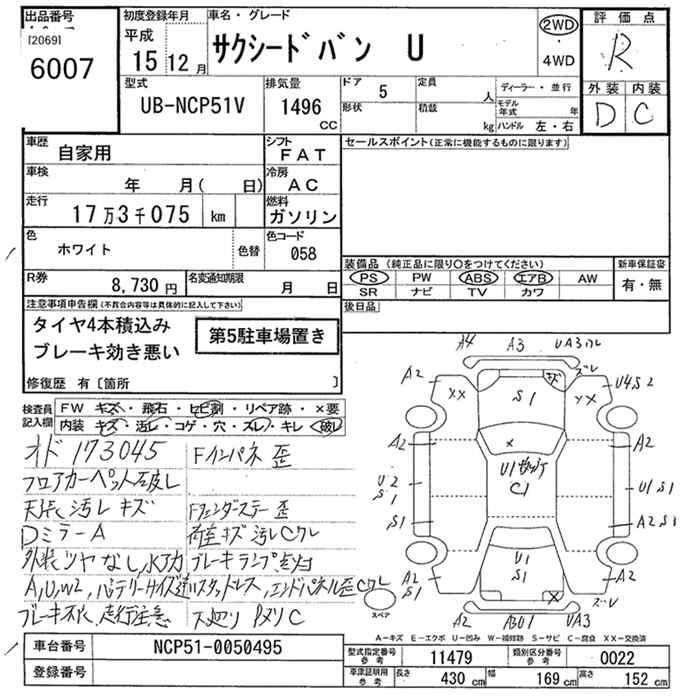 出品番号
[2069]
6007
初度登録年月
平成
15 12月
車名・グレード
サクシードバン U
2WD
・
4WD
評価点
R
外装 内装
D C
型式
UB-NCP51V
排気量
1496
CC
ドア 5
形状
定員 人
積載 kg
ディーラー・並行
モデル年式 年
ハンドル 左・右
車歴
自家用
シフト
FAT
セールスポイント(正常に機能するものに限ります)
車検
年 月( 日)
冷房
AC
走行
17万3千075 km
燃料
ガソリン
色
ホワイト
色替
色コード
058
装備品 (純正品に限り○をつけてください)
新車保証書
PS PW ABS エアB AW
SR ナビ TV カワ
有・無
R券
8,730円
名変通知期限
月 日
後日品
注意事項申告欄(不具合内容等は具体的に記入して下さい)
タイヤ4本積込み
ブレーキ効き悪い
第5駐車場置き
修復歴 有〔箇所 〕
検査員
記入欄
FW キズ・飛石・ヒビ割・リペア跡・×要
内装 キズ・汚レ・コゲ・穴・ズレ・キレ・破レ
オド 173045 Fインパネ 歪
フロアカーペット破レ
天張汚レキズ Fフェンダーステー歪
Dミラー A 荷室キズ汚レCワレ
外装ツヤなし,水アカ ブレーキランプ点灯
A,U,W2, バッテリーサイズ違 スタッドレス,エンドパネル歪Cワレ
ブレーキ不良,走行注意 下廻り PメリC
A4 A3 UA3ワレ
A2 ××  S1 キズ ×× ズレ U4S2
A2 × A2
U2
S1
U1
C1
U1S1
S1 A2S1
A2
S1
U1
S1
×
A2
ズレ
A2 ABU1 UA3
スペア
A-キズ E-エクボ U-凹み W-補修跡 S-サビ C-腐食 XX-交換済
車台番号 NCP51-0050495
登録番号
型式指定番号
参考
11479
類別区分番号
参考
0022
車庫証明用
参考
長さ 430 cm 幅 169 cm 高さ 152 cm